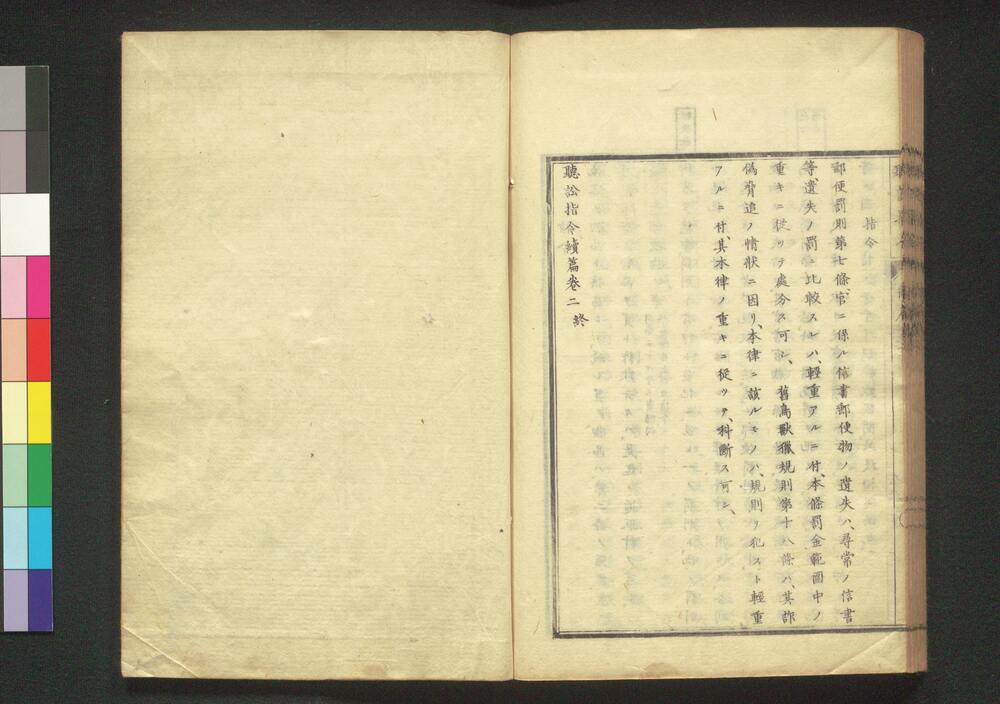 指令
郵便罰則第七條、官ニ係ル信書郵便物ノ遺失ハ、尋常ノ信書
等、遺失ノ罰ニ比較スレハ、輕重アルニ付、本條罰金範圍中ノ
重キニ從ツテ處分ス可シ、舊鳥獸獵規則第十八條ハ、其詐
僞脅迫ノ情狀ニ因リ、本律ニ該ルモノハ、規則ヲ犯スト輕重
アルニ付、其本律ノ重キニ從ツテ、科斷ス可シ、
聽訟指令續篇卷二終